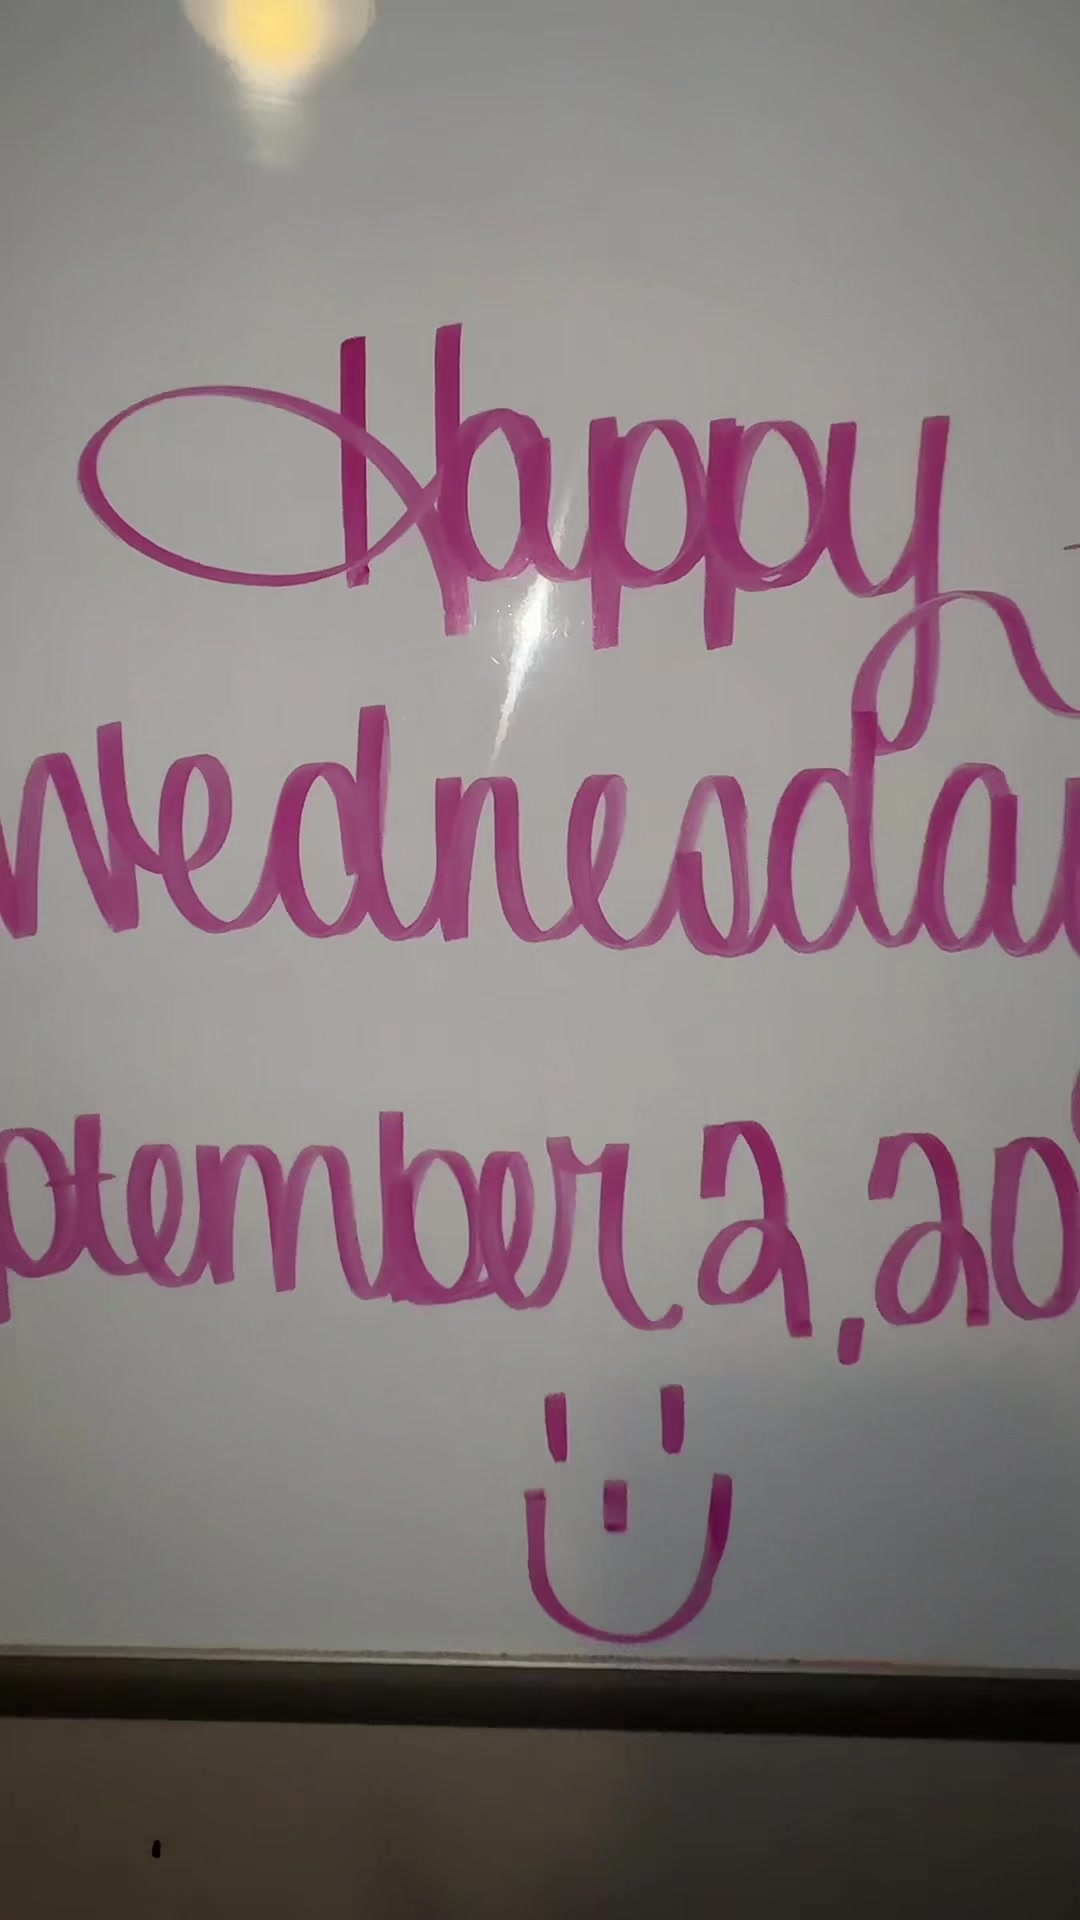 Happy
Wednesda
ptember 2, 20